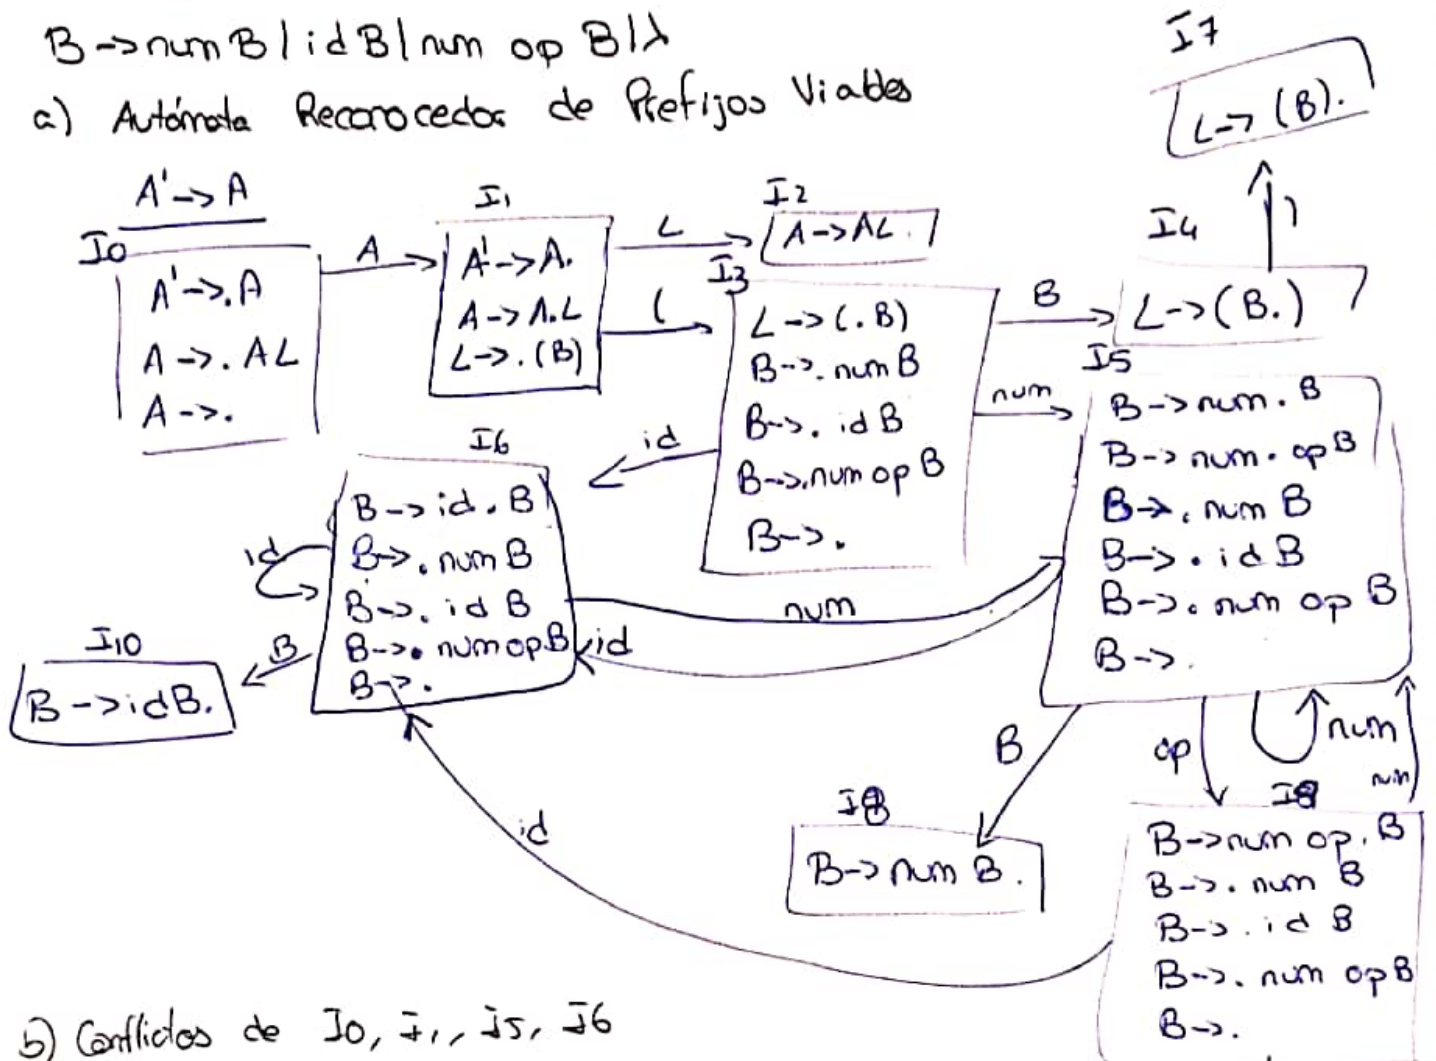 B->num B | id B | num op B | λ
a) Autómata Reconocedor de Prefijos Viables
A'->A
I0
A'->.A
A->.AL
A->.
A
I1
A'->A.
A->A.L
L->.(B)
L
I2
A->AL.
(
I3
L->(.B)
B->.num B
B->.id B
B->.num op B
B->.
B
I4
L->(B.)
)
I7
L->(B).
num
I5
B->num.B
B->num.op B
B->.num B
B->.id B
B->.num op B
B->.
id
I6
B->id.B
B->.num B
B->.id B
B->.num op B
B->.
id
num
id
B
I10
B->id B.
B
B->num B.
op
num
num
B->num op.B
B->.num B
B->.id B
B->.num op B
B->.
id
b) Conflictos de I0, I1, I5, I6